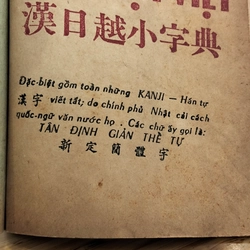 漢日越小字典
Đặc-biệt gồm toàn những KANJI – Hán tự
漢字 viết tắt; do chính phủ Nhật cải cách
quốc-ngữ văn nước họ. Các chữ ấy gọi là:
TÂN ĐỊNH GIẢN THỂ TỰ
新定簡體字